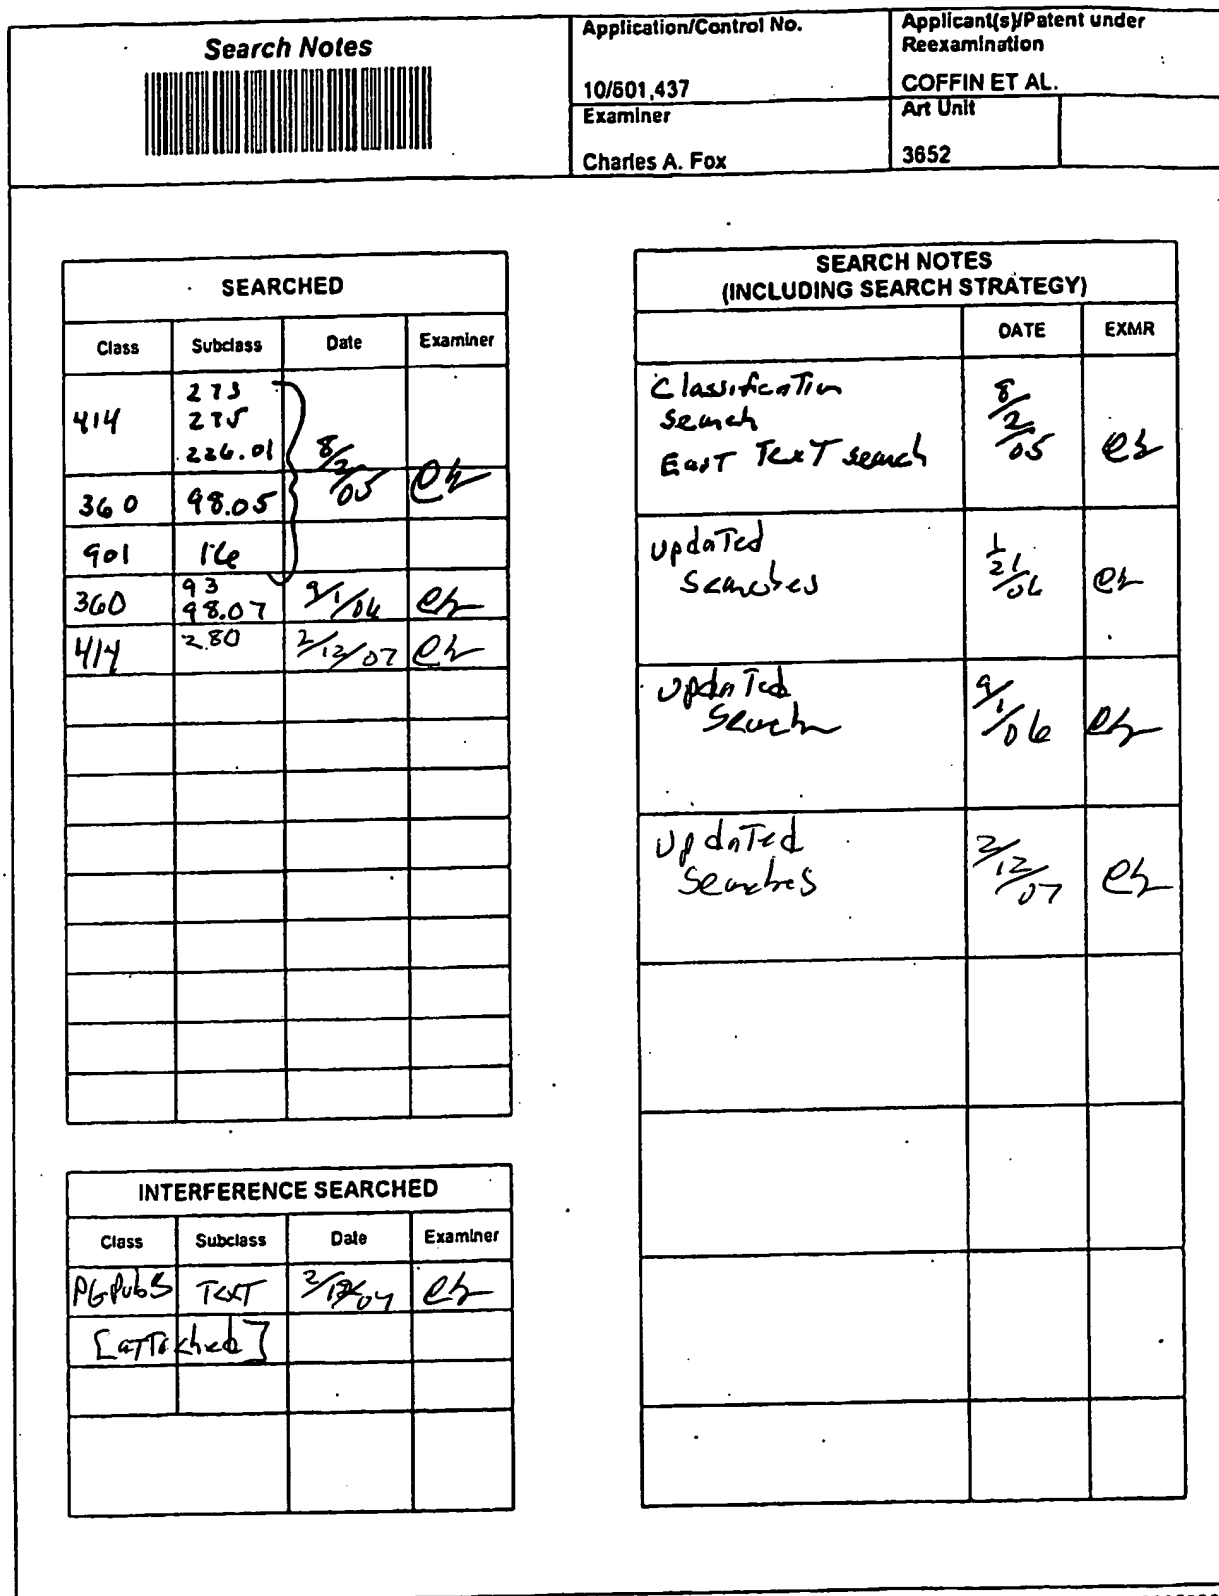 Search Notes
Application/Control No.
10/601,437
Applicant(s)/Patent under
Reexamination
COFFIN ET AL.
Examiner
Charles A. Fox
Art Unit
3652
SEARCHED
Class Subclass Date Examiner
414 273
275
226.01 8/2/05
360 98.05
901 16
360 93
98.07 9/1/06
414 280 2/12/07
INTERFERENCE SEARCHED
Class Subclass Date Examiner
PGPubs Text
[attached]
SEARCH NOTES
(INCLUDING SEARCH STRATEGY)
DATE EXMR
Classification
Search
East Text search 8/2/05
Updated
Searches 1/21/06
Updated
Search 9/1/06
Updated
Searches 2/12/07